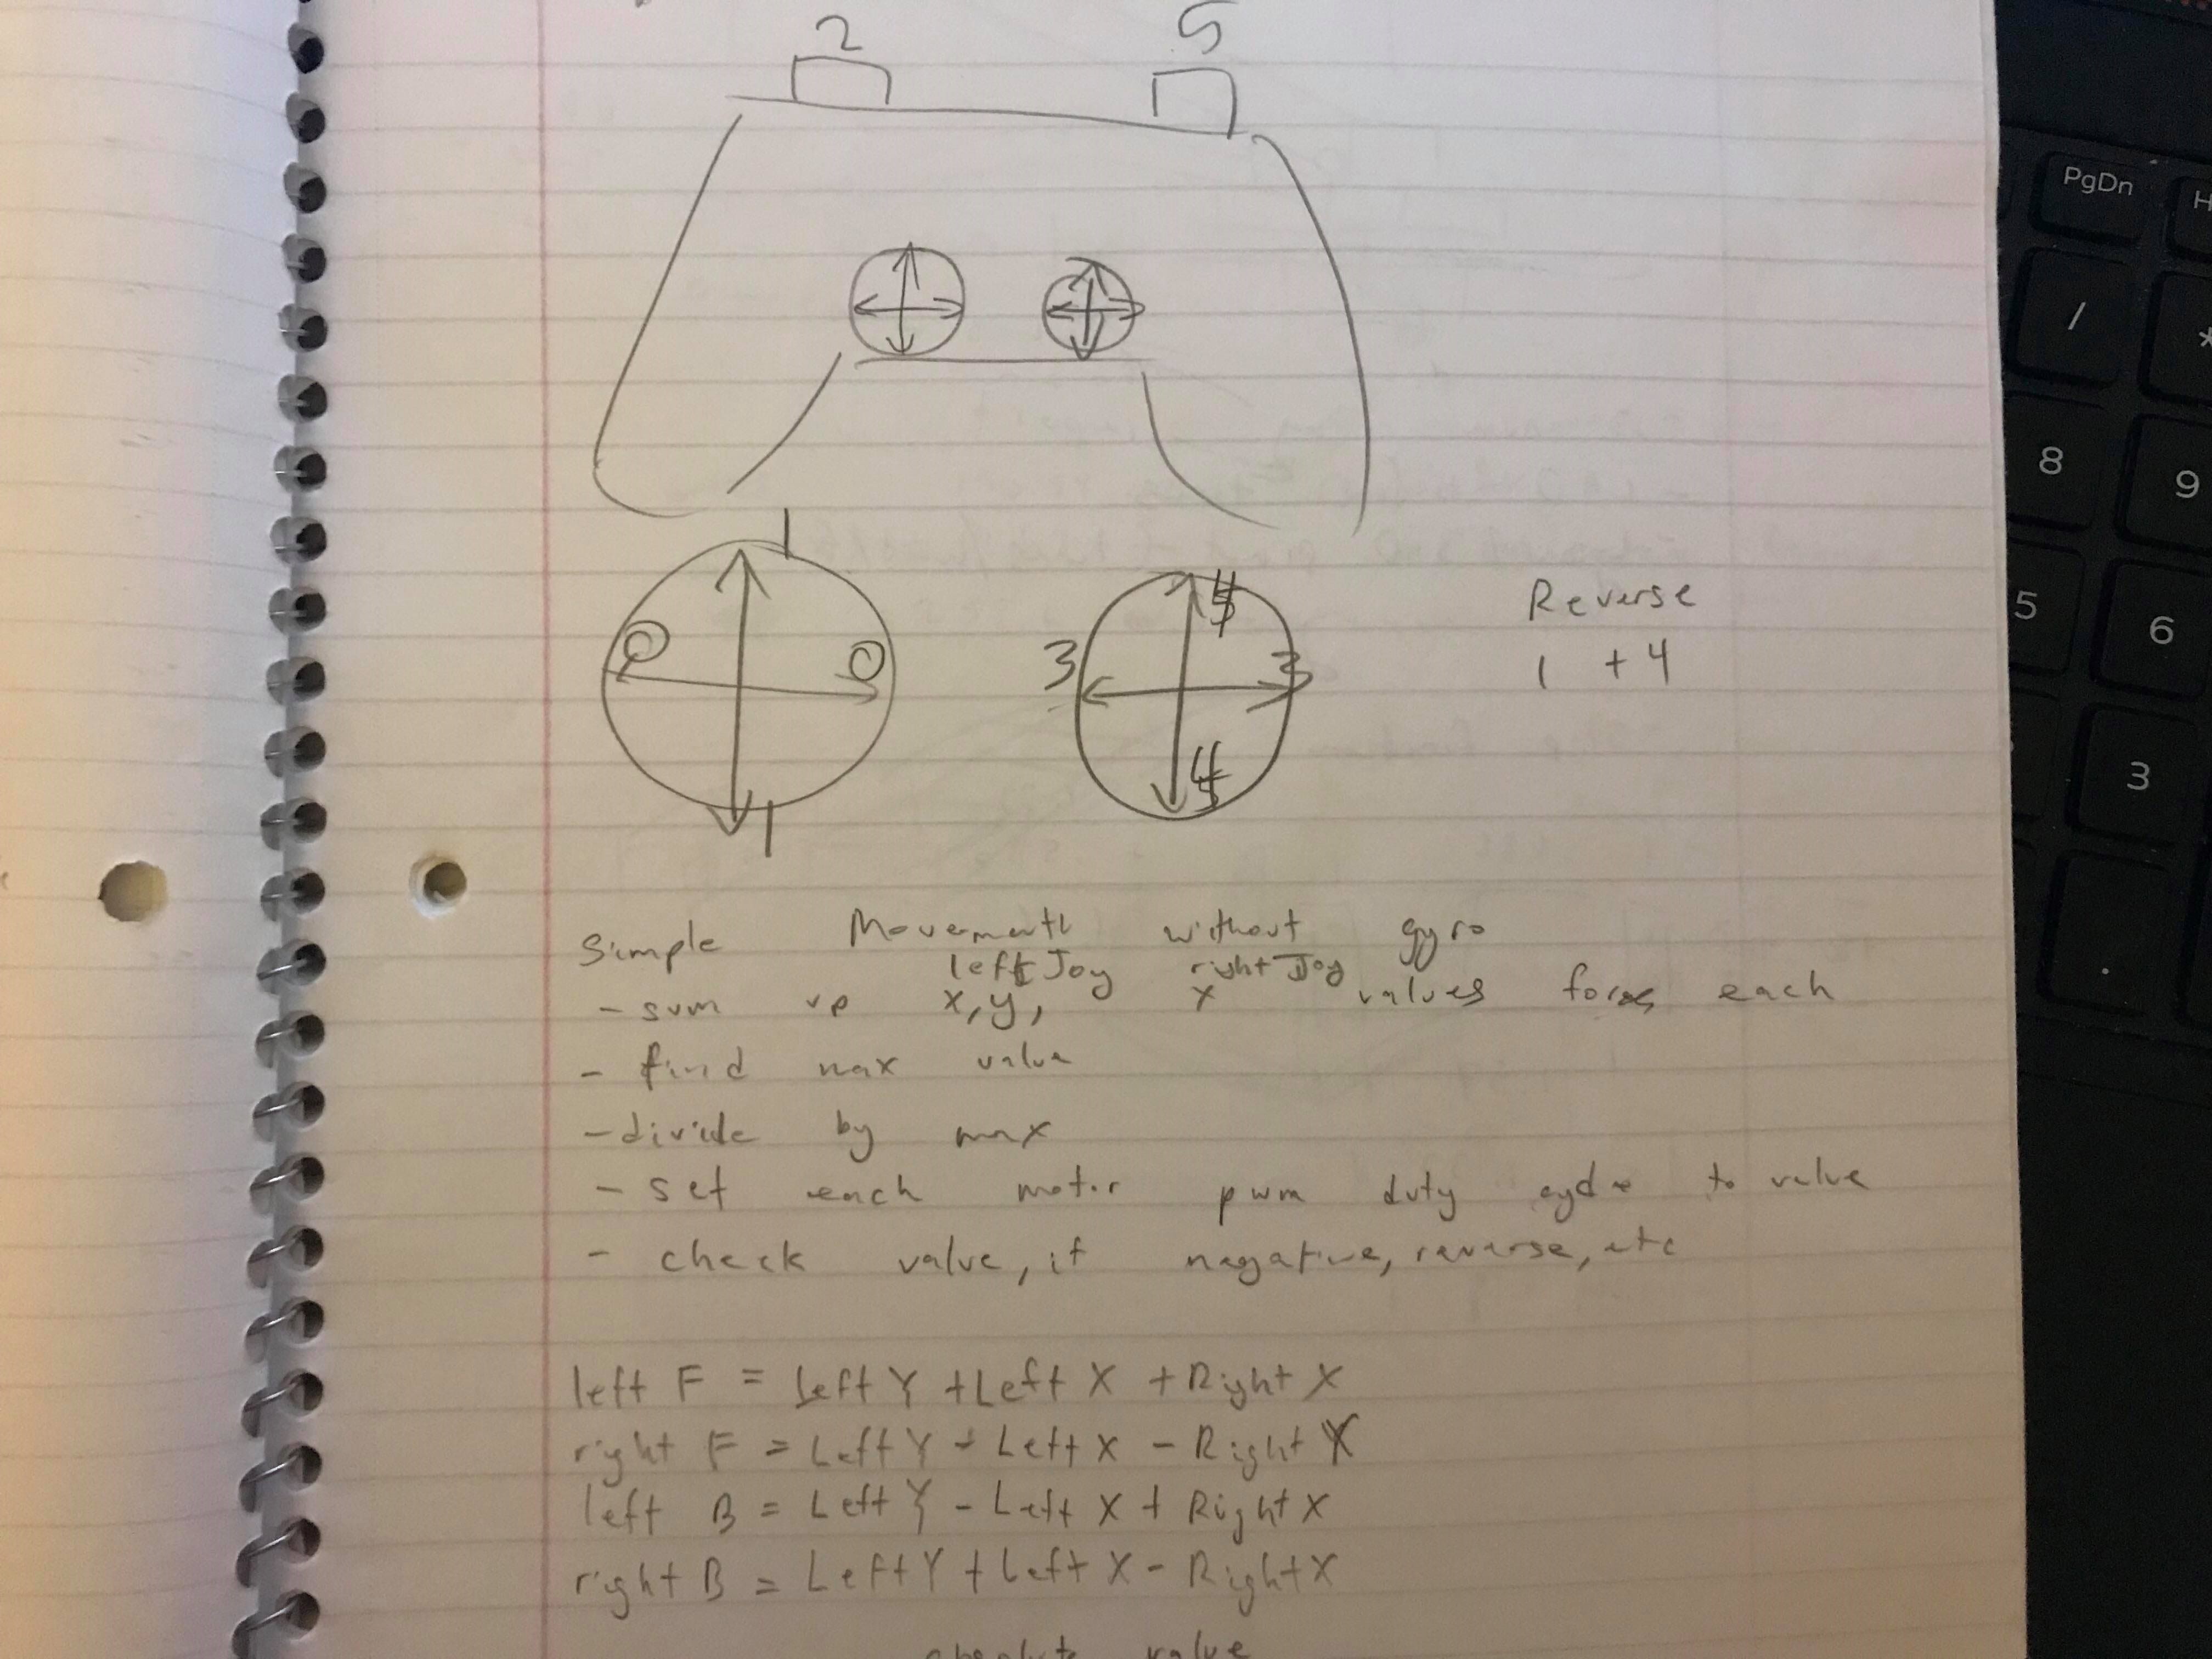 2 5
1
0 0
3 3
4
1
Reverse
1 + 4
Simple Movement without gyro
leftJoy rightJoy
- sum up x, y, x values for each
- find max value
- divide by max
- set each motor pwm duty cycle to value
- check value, if negative, reverse, etc
left F = Left Y + Left X + Right X
right F = Left Y - Left X - Right X
left B = Left Y - Left X + Right X
right B = Left Y + Left X - Right X
absolute value
PgDn H
/ *
8 9
5 6
3
.